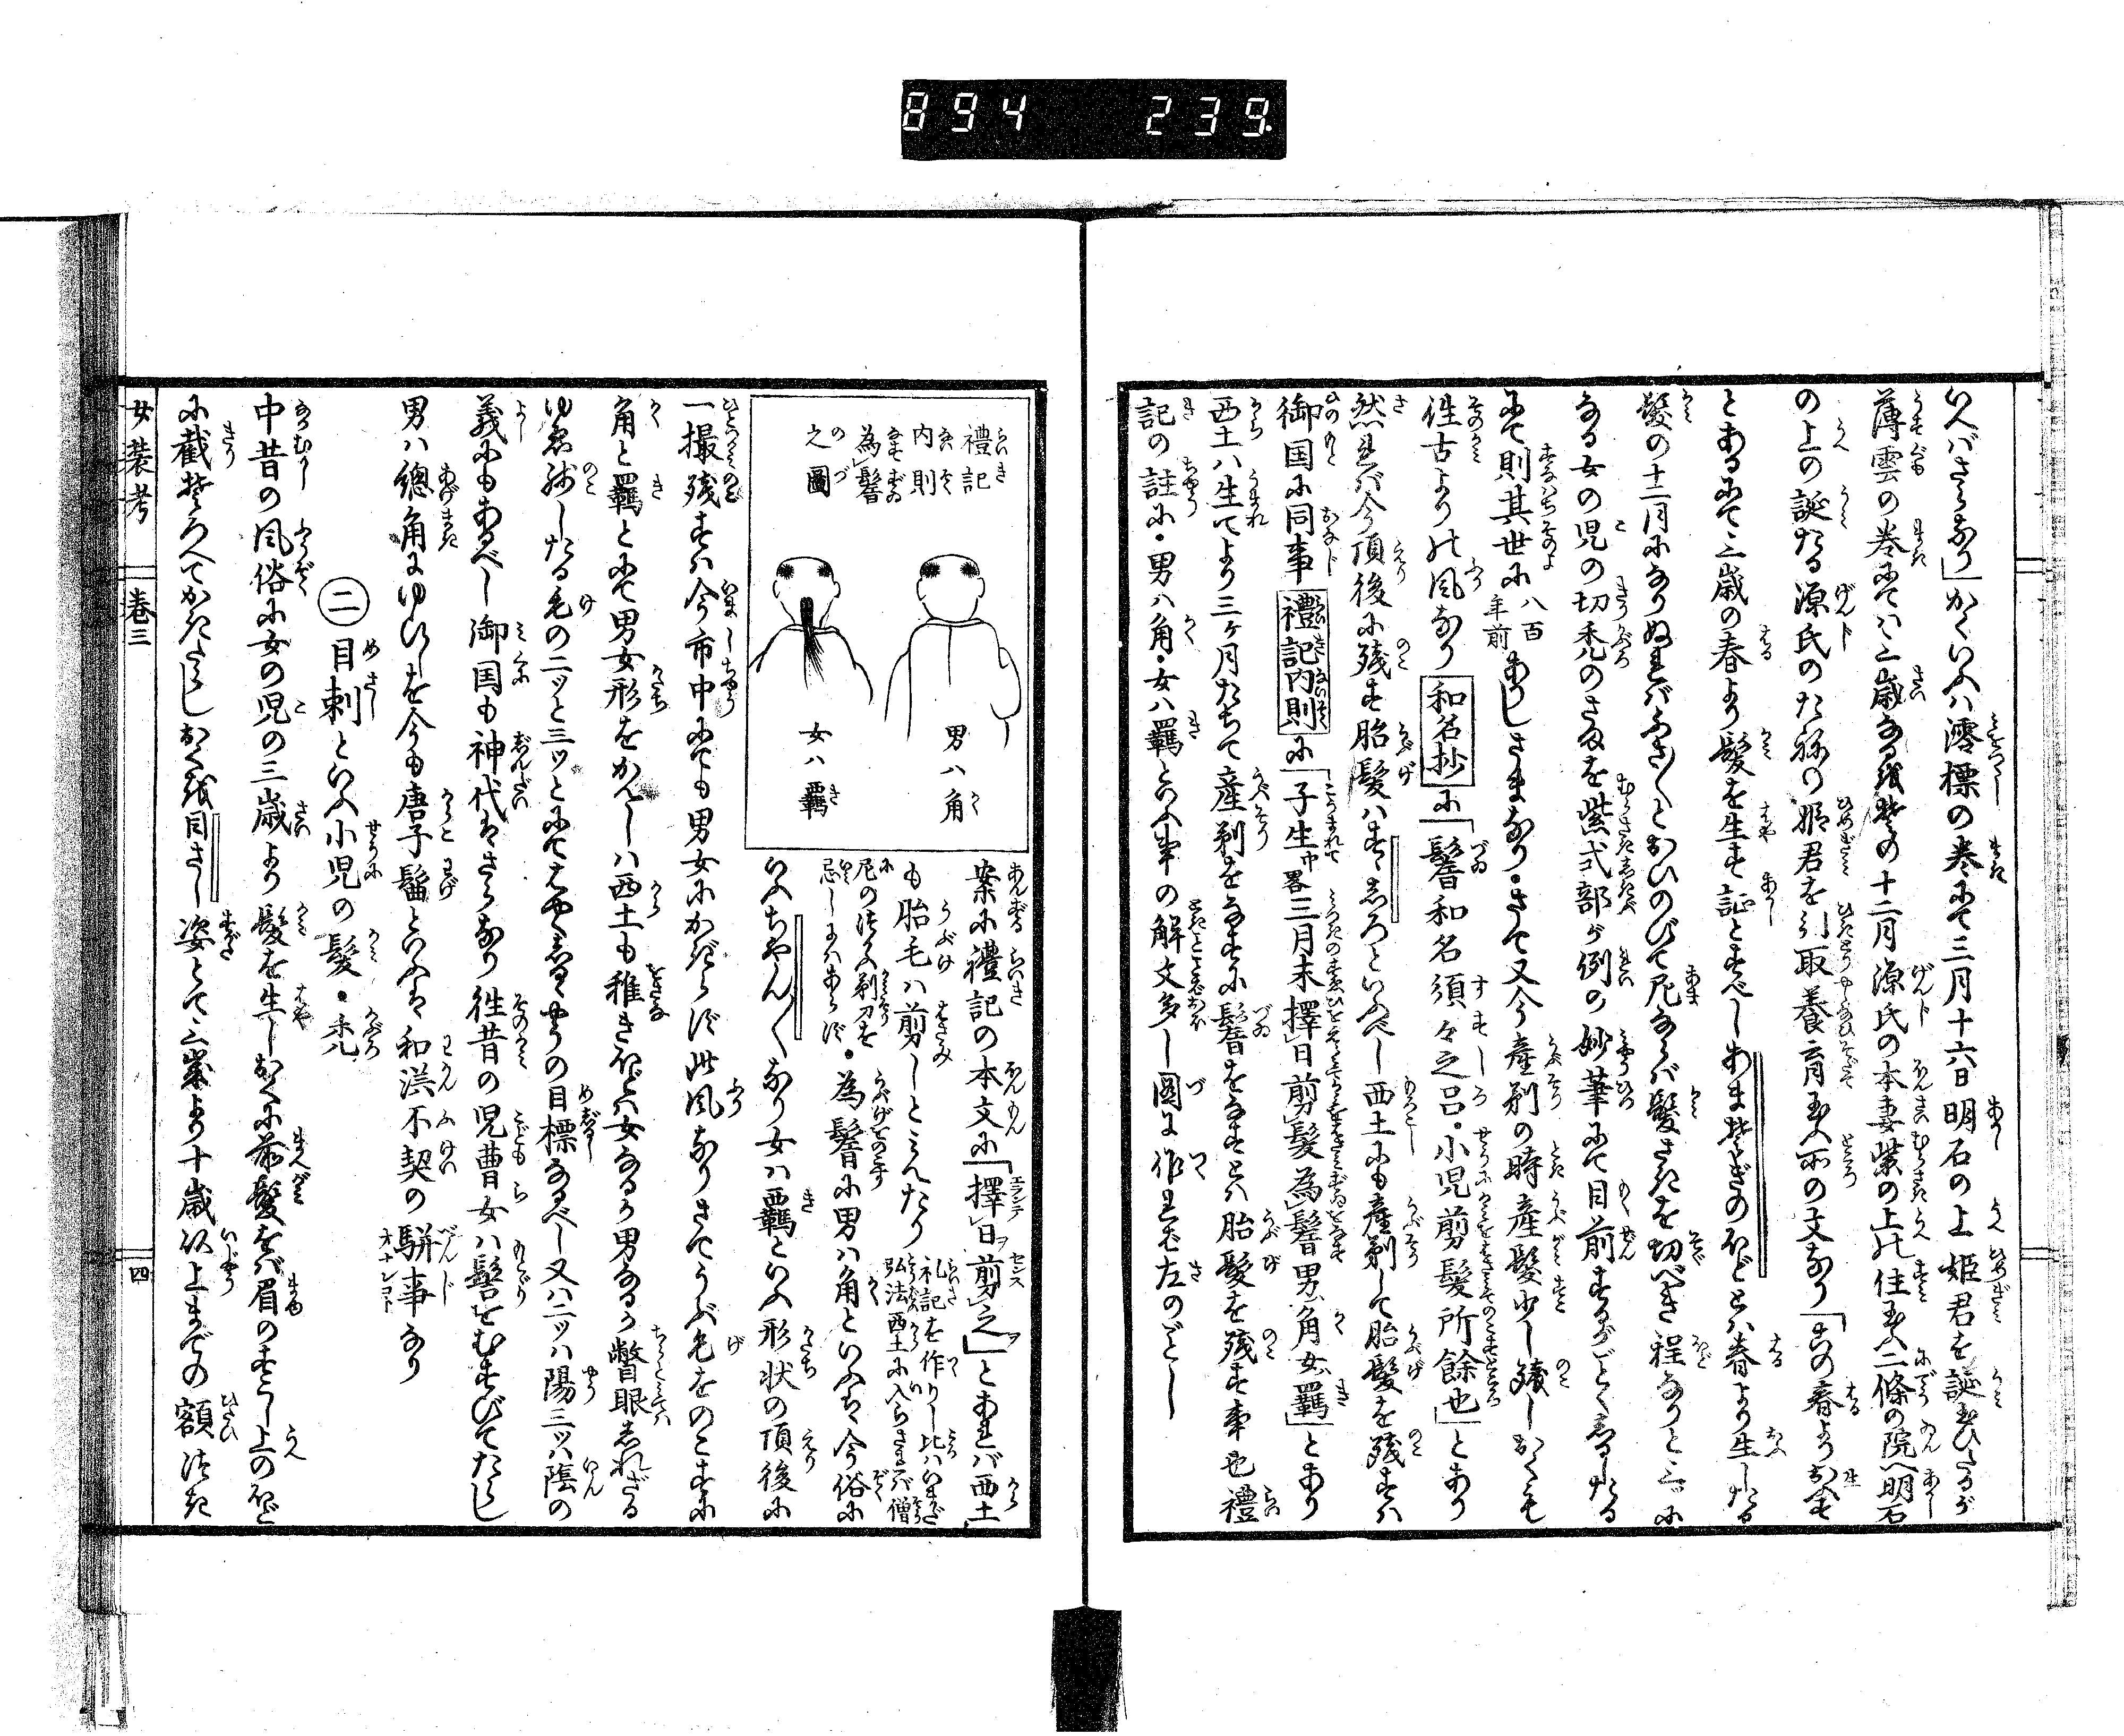 894 239
いへばさらなり」かくいふハ澪標の巻にて三月十六日明石の上姫君を誕玉ひたるが
薄雲の巻にてハ三歳なる後其年の十二月源氏の本妻紫の上の住玉ふ二條の院へ明石
の上の誕たる源氏のたねの姫君を引取養育玉ふ所の文なり「此の春よりおほす
とあるにて三歳の春より髪を生す証とすべしあまそぎのほどとハ春より生したる
髪の十二月になりぬればふさ〳〵とおひのびて尼ならバ髪さきを切べき程なりと三ツに
なる女の児の切禿のさまを紫式部が例の妙筆にて目前するがごとくしるしたる
にて則其世に八百年前ありしさまなり・さて又今産剃の時産髪少し残しおくも
往古よりの風なり和名抄に「鬌和名須々之呂・小児剪髪所餘也」とあり
然れバ今頂後に残す胎髪ハすゞしろといふべし西土にも産剃して胎髪を残すハ
御国に同事禮記内則に「子生中畧三月末擇日剪髪為鬌男角女羈」とあり
西土ハ生てより三ヶ月たちて産剃をなすに鬌をなすとハ胎髪を残す事也禮
記の註に・男ハ角・女ハ羈といふ事の解文多し圖に作れば左のごとし
禮記
内則
為鬌
之圖
男ハ角
女ハ羈
案に禮記の本文に「擇日剪之」とあれバ西土
も胎毛ハ剪しとみえたり礼記を作りし比ハいまだ弘法西土に入らざれバ僧
尼の法の剃刀を忌しにハあらず・為鬌に男ハ角といふハ今俗に
いふちやん〳〵なり女ハ羈といふ形状の頂後に
一撮残すハ今市中にても男女にかぎらず此風なりさてうぶ毛をのこすに
角と羈とにて男女形をかへしハ西土も稚きほどハ女なるか男なるか瞥眼しれざる
ゆゑ残したる毛の二ツと三ツとにてはやくしるやうの目標なるべし又ハ二ツハ陽三ツハ陰の
義にもあるべし御国も神代はさらなり往昔の児曹女ハ髻をむすびてたらし
男ハ總角にゆひしを今も唐子髷といふは和漢不契の駢事なり
二 目刺といふ小児の髪・禿
中昔の風俗に女の児の三歳より髪を生しおくに前髪をバ眉のすこし上のほど
に截そろへてかきたらしおく後目さし姿とて三歳より十歳以上までの額つき
女装考 巻三 四